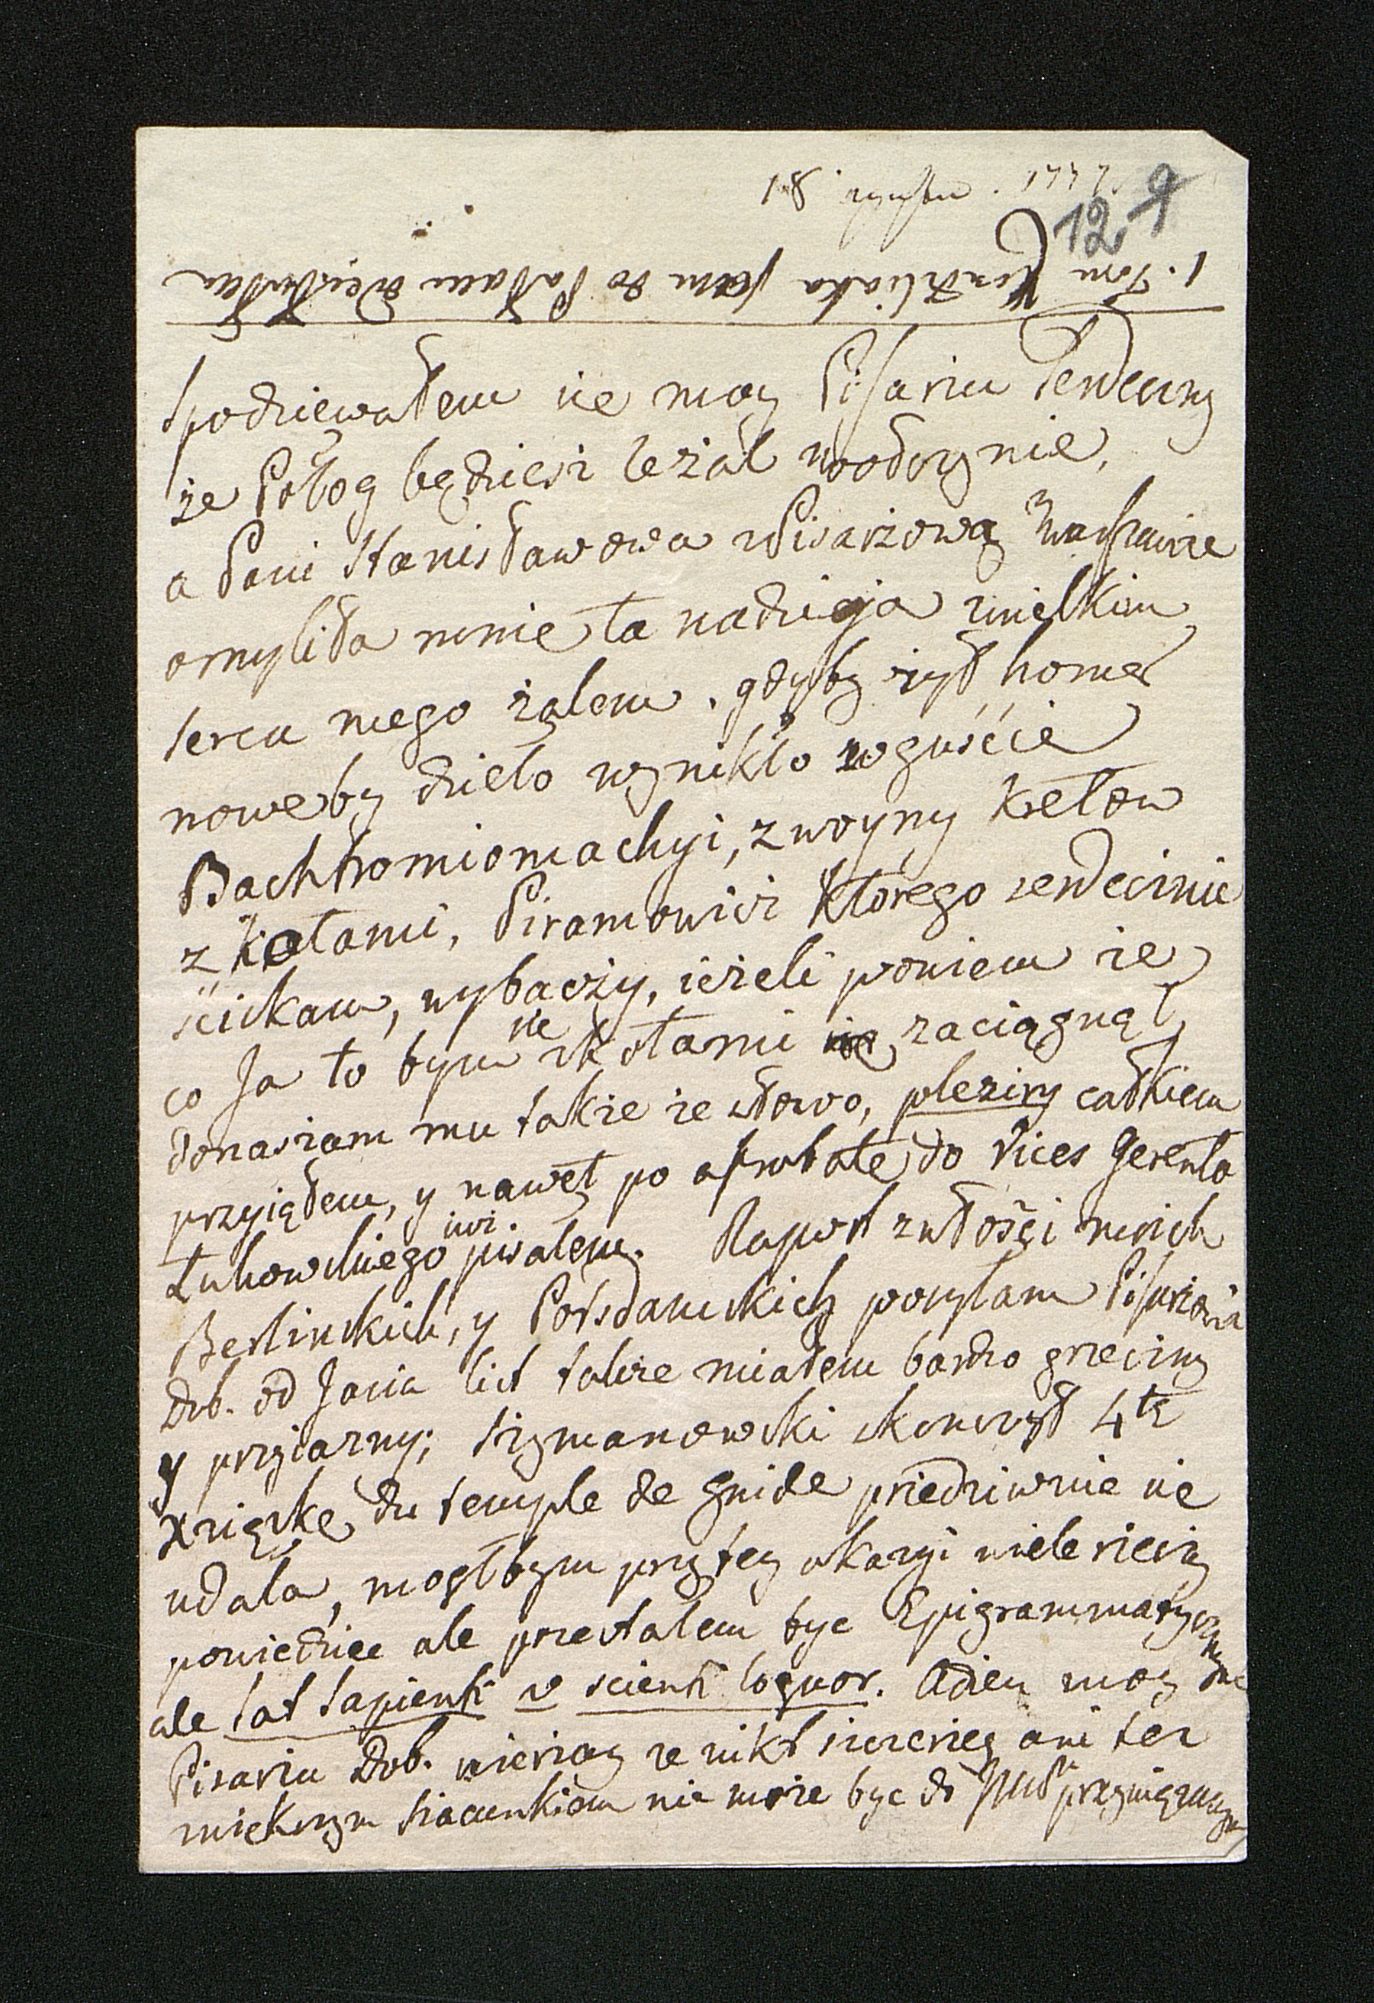 18. 1777.
127
Spodziewałem sie moy Pisarzu Serdeczny
że Połog będziesz leżał w odorynie,
a Pani Stanisławowa Pisarzową w Warszawie
omyliła mnie ta nadzieja z wielkim
serca mego żalem. gdyby żył homer
noweby dzieło wynikło w guście
Bachtromiomachyi, z woyny kretow
z kotami, Piramowicz którego serdecznie
sciskam, wybaczy, ieżeli powiem że
co Ja to bym sie z kotami zaciągnął
donaszam mu także że słowo, pleziry całkiem
przyiąłem, y nawet po aprobate do Vices Gerenta
Łuhowskiego iuż pisałem. Raport z włości moich
Berlinskich, y Potsdamskich posyłam Pisarzowi
Dob. od Jasia list także miałem bardzo grzeczny
y przyiazny; Szymanowski skonczył 4tą
Xriąszkę du temple de gnide przedziwnie sie
udala, mogłbym przy tey okazyi wiele rzeczy
powiedziec ale przestalem byc Epigrammatycznym
ale sat sapienti v scienti loquor. Adieu moy
Pisarzu Dob. wierzay że nikt szczerzey ani tez
wiekszym szacunkiem nie może byc do przywiązanym